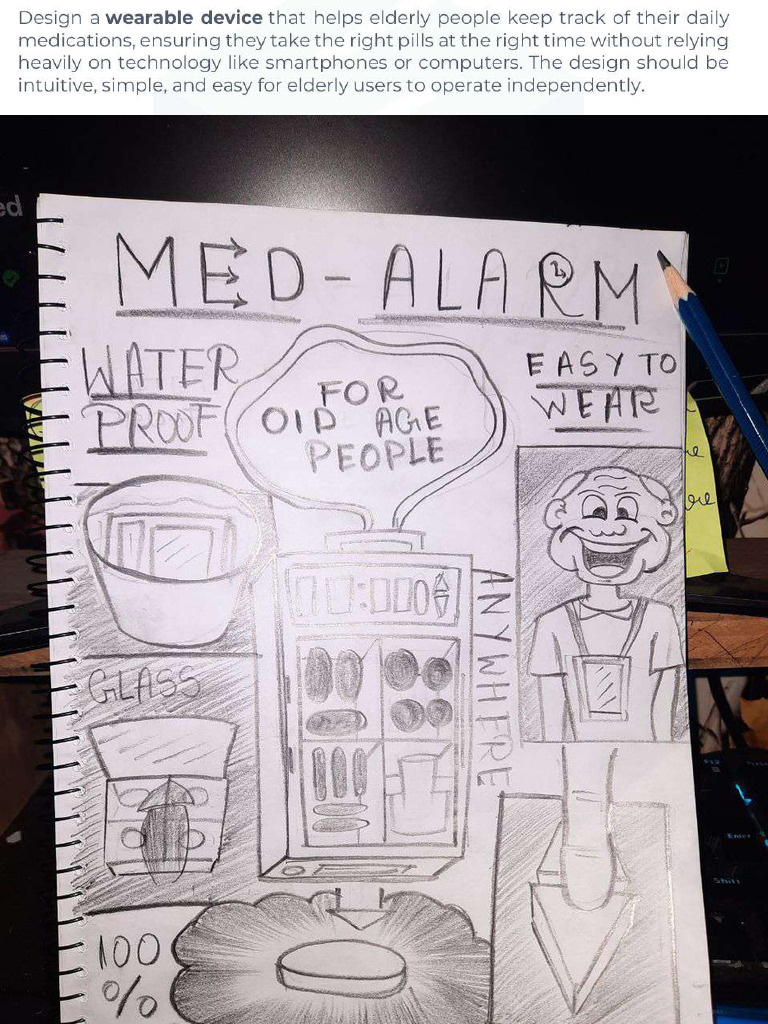 Design a wearable device that helps elderly people keep track of their daily
medications, ensuring they take the right pills at the right time without relying
heavily on technology like smartphones or computers. The design should be
intuitive, simple, and easy for elderly users to operate independently.
ed
MED-ALARM
WATER
PROOF
FOR
OlD AGE
PEOPLE
EASY TO
WEAR
ANYWHERE
GLASS
100
%
Enter
Shift